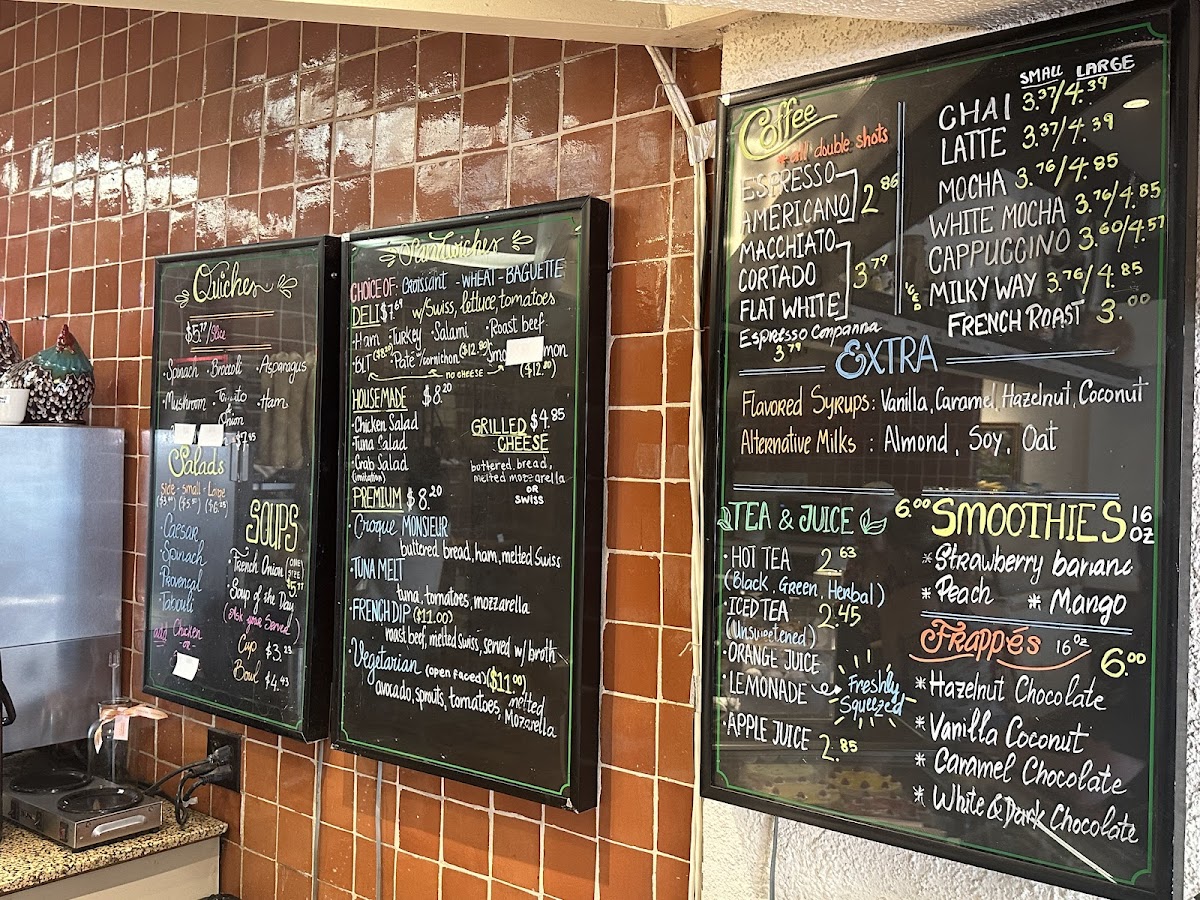 Quiches
/Slice
· Spinach · Broccoli · Asparagus
· Mushroom · Tomato & Onion · Ham
Salads
side - small - Large
· Caesar
· Spinach
· Provençal
· Tabouli
add Chicken
-or-
SOUPS
· French Onion (ONE SIZE
· Soup of the Day
(Ask your Server)
Cup $3.23
Bowl $4.43
Sandwiches
CHOICE OF: Croissant - WHEAT - BAGUETTE
DELI $7.69 w/Swiss, lettuce tomatoes
· Ham · Turkey · Salami · Roast beef
· BLT ($8.20) · Pate w/cornichon ($12.80) · Smo mon
← NO CHEESE → ($12.80)
HOUSEMADE $8.20
· Chicken Salad
· Tuna Salad
· Crab Salad
(imitation)
GRILLED $4.85
CHEESE
buttered, bread,
melted mozzarella
OR
SWISS
PREMIUM $8.20
· Croque MONSIEUR
buttered bread, ham, melted Swiss
· TUNA MELT
tuna, tomatoes, mozzarella
· FRENCH DIP ($11.00)
roast beef, melted swiss, served w/ broth
· Vegetarian (open faced) ($11.00)
avocado, sprouts, tomatoes, melted Mozarella
Coffee
* all double shots
ESPRESSO
AMERICANO 2.86
MACCHIATO
CORTADO 3.79
FLAT WHITE
Espresso Companna
3.79
SMALL LARGE
CHAI 3.37/4.39
LATTE 3.37/4.39
MOCHA 3.76/4.85
WHITE MOCHA 3.76/4.85
CAPPUCCINO 3.60/4.57
MILKY WAY 3.76/4.85
FRENCH ROAST 3.00
EXTRA
Flavored Syrups: Vanilla, Caramel, Hazelnut, Coconut
Alternative Milks : Almond, Soy, Oat
TEA & JUICE
· HOT TEA 2.63
(Black, Green, Herbal)
· ICED TEA 2.45
(Unsweetened)
· ORANGE JUICE
· LEMONADE
Freshly
Squeezed
· APPLE JUICE 2.85
6.00 SMOOTHIES 16 OZ
* Strawberry banana
* Peach * Mango
Frappés 16 oz 6.00
* Hazelnut Chocolate
* Vanilla Coconut
* Caramel Chocolate
* White & Dark Chocolate